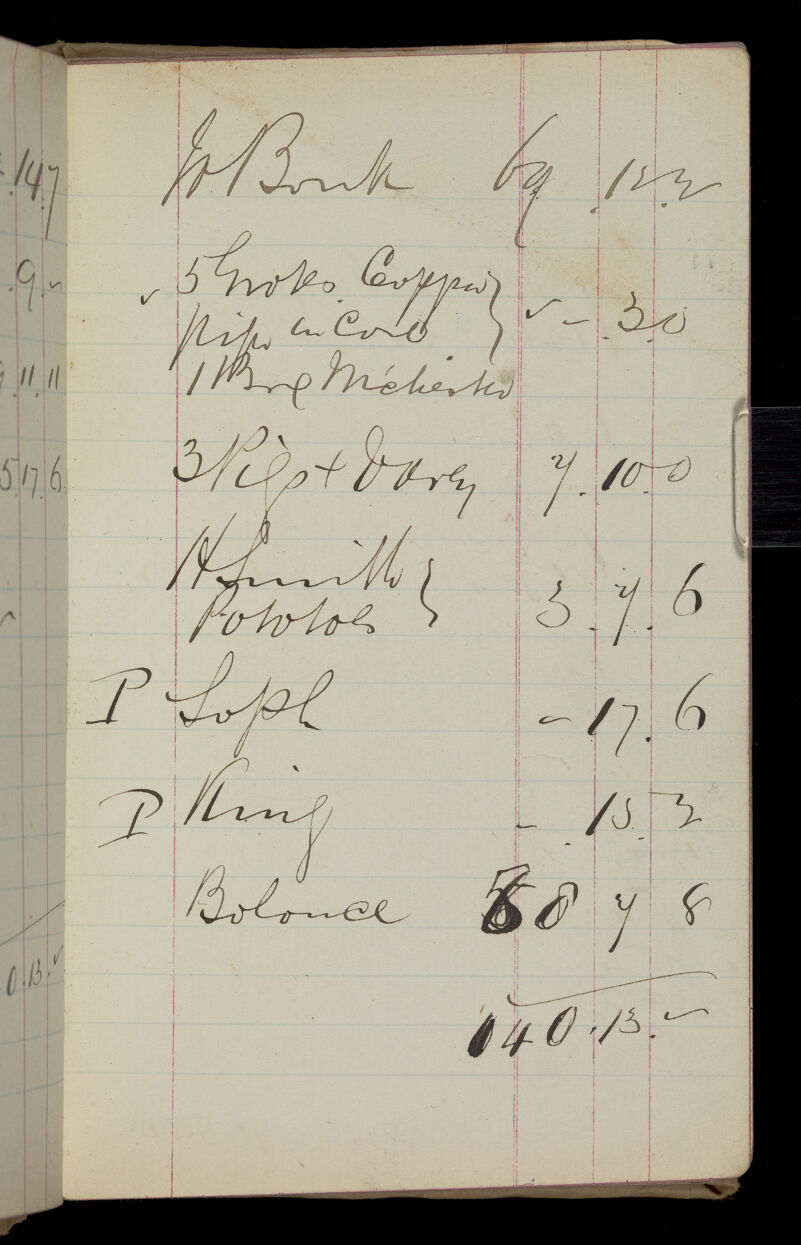 14.7
To Bank 69.12.2
9.-
Copper
pipe in - 3.0
11.11
1
3 Pigs + 7.10.0
5.17.6
H Smith
Potatoes 3.7.6
P Soph - 17.6
P King - 15.2
Balance 58 7 8
0.13.-
140.13.-